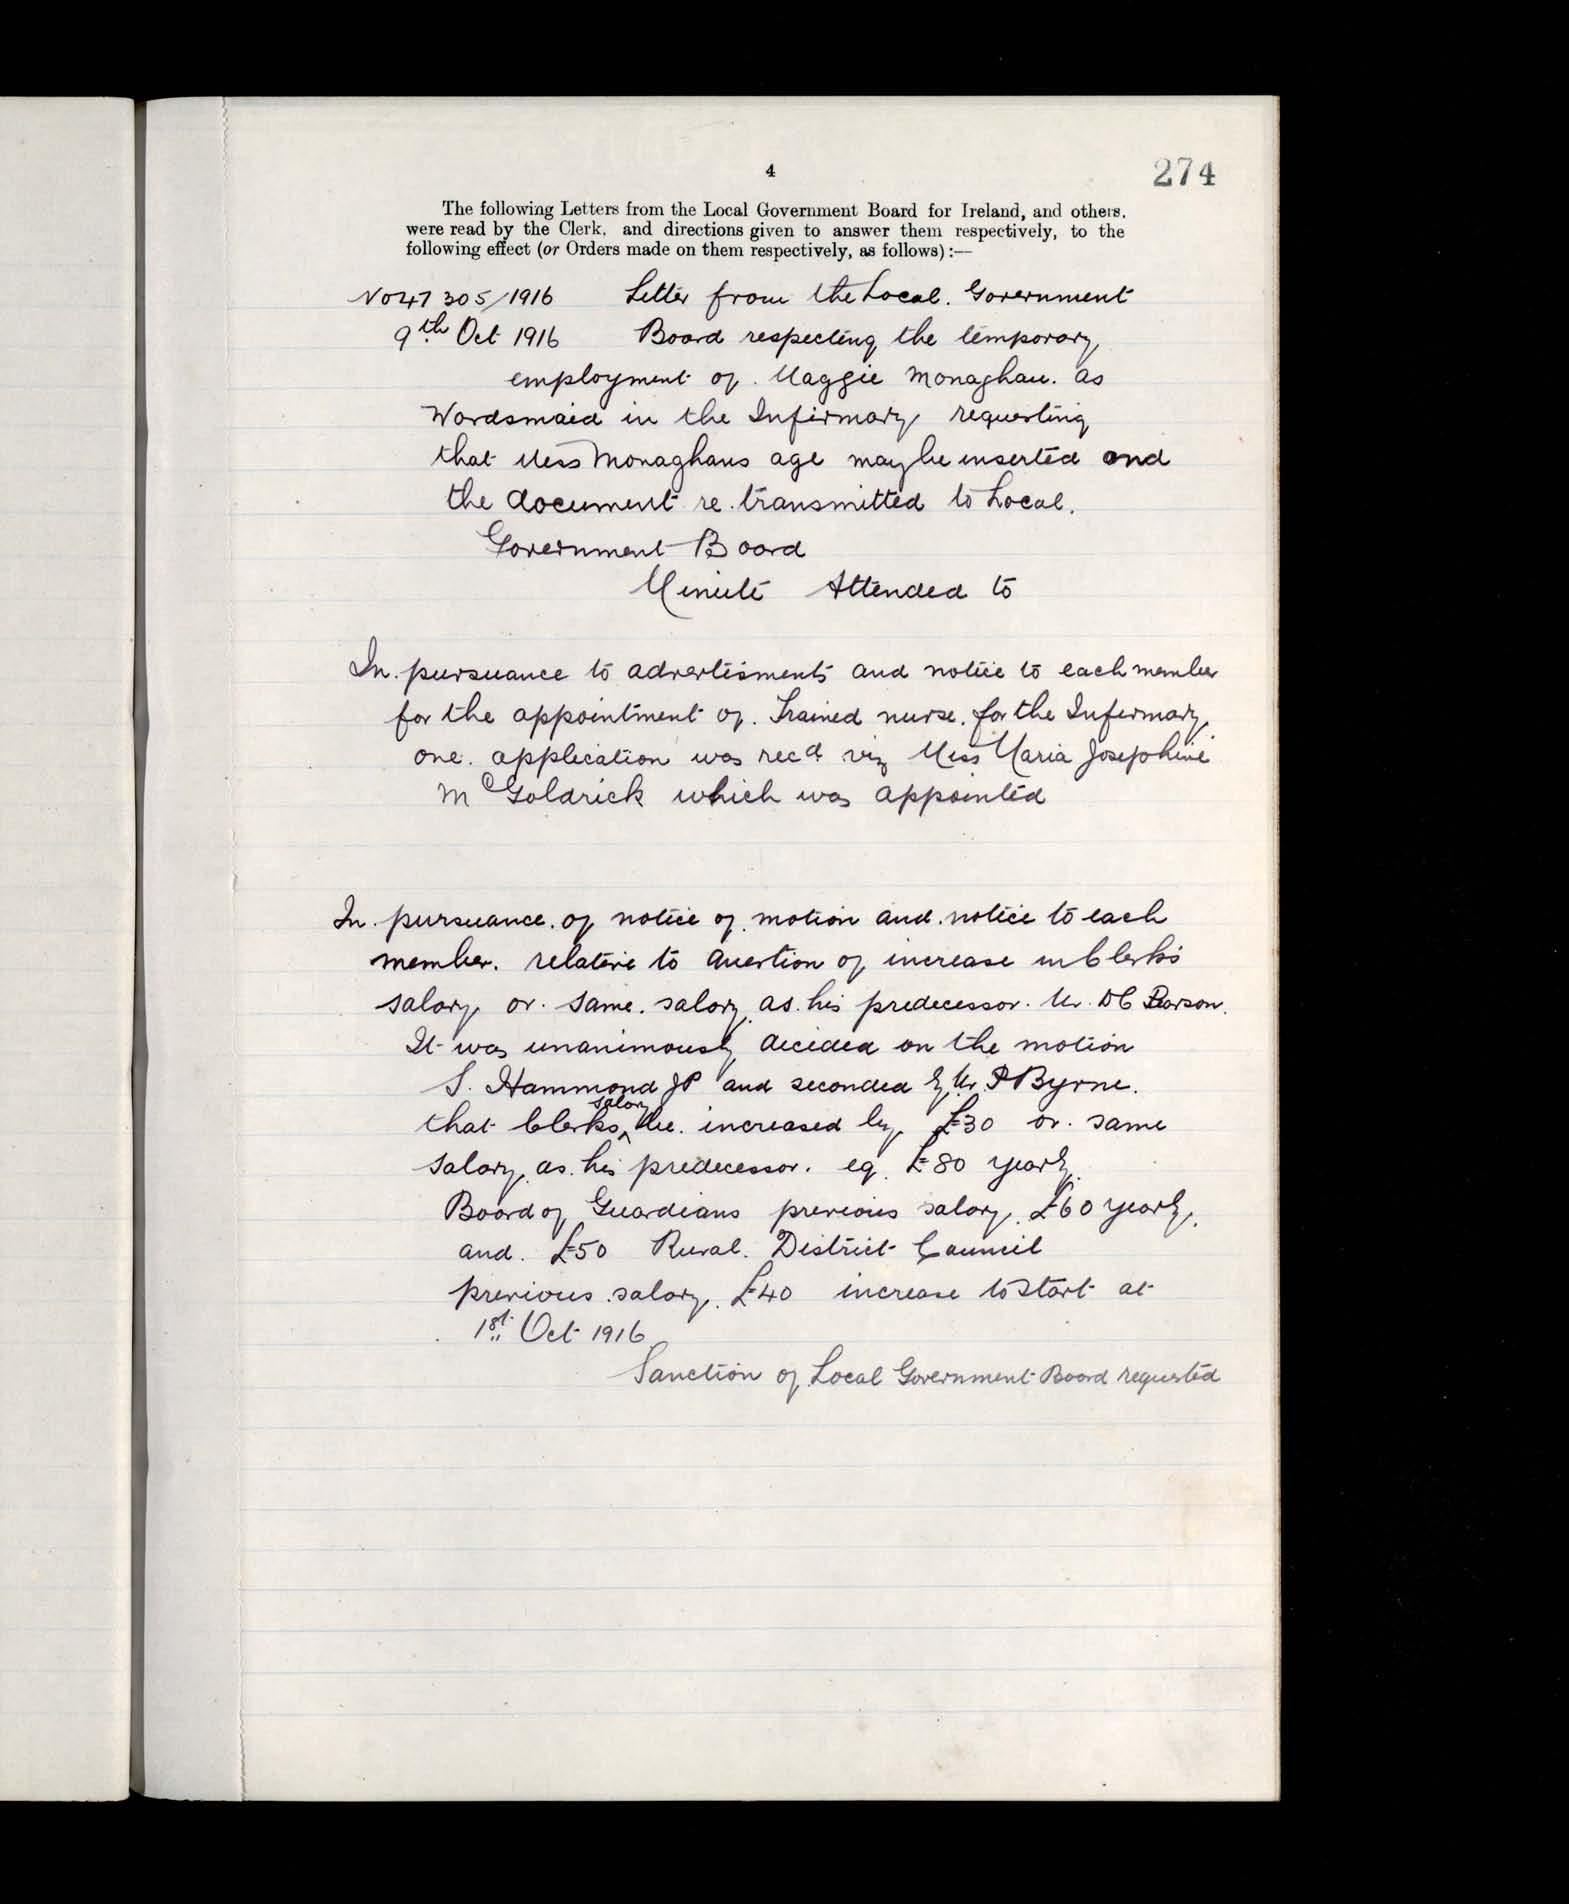 4
274
The following Letters from the Local Government Board for Ireland, and others,
were read by the Clerk, and directions given to answer them respectively, to the
following effect (or Orders made on them respectively, as follows):—
No 47305/1916 Letter from the Local Government
9th Oct 1916 Board respecting the temporary
employment of Maggie Monaghan as
Wardsmaid in the Infirmary requesting
that Miss Monaghans age may be inserted and
the document re.transmitted to Local.
Government Board
Minute Attended to
In pursuance to advertisments and notice to each member
for the appointment of Trained nurse for the Infirmary
one application was recd viz Miss Maria Josephine
McGoldrick which was appointed
In pursuance of notice of motion and notice to each
member. relative to question of increase in Clerks
salary or same salary as his predecessor Mr. D C Pearson.
It was unanimously decided on the motion
S. Hammond JP and seconded by Mr. P Byrne.
that Clerks salary be increased by £30 or same
salary as his predecessor. eq £80 yearly.
Board of Guardians previous salary £60 yearly.
and £50 Rural District Council
previous salary £40 increase to start at
1st Oct 1916
Sanction of Local Government Board requested